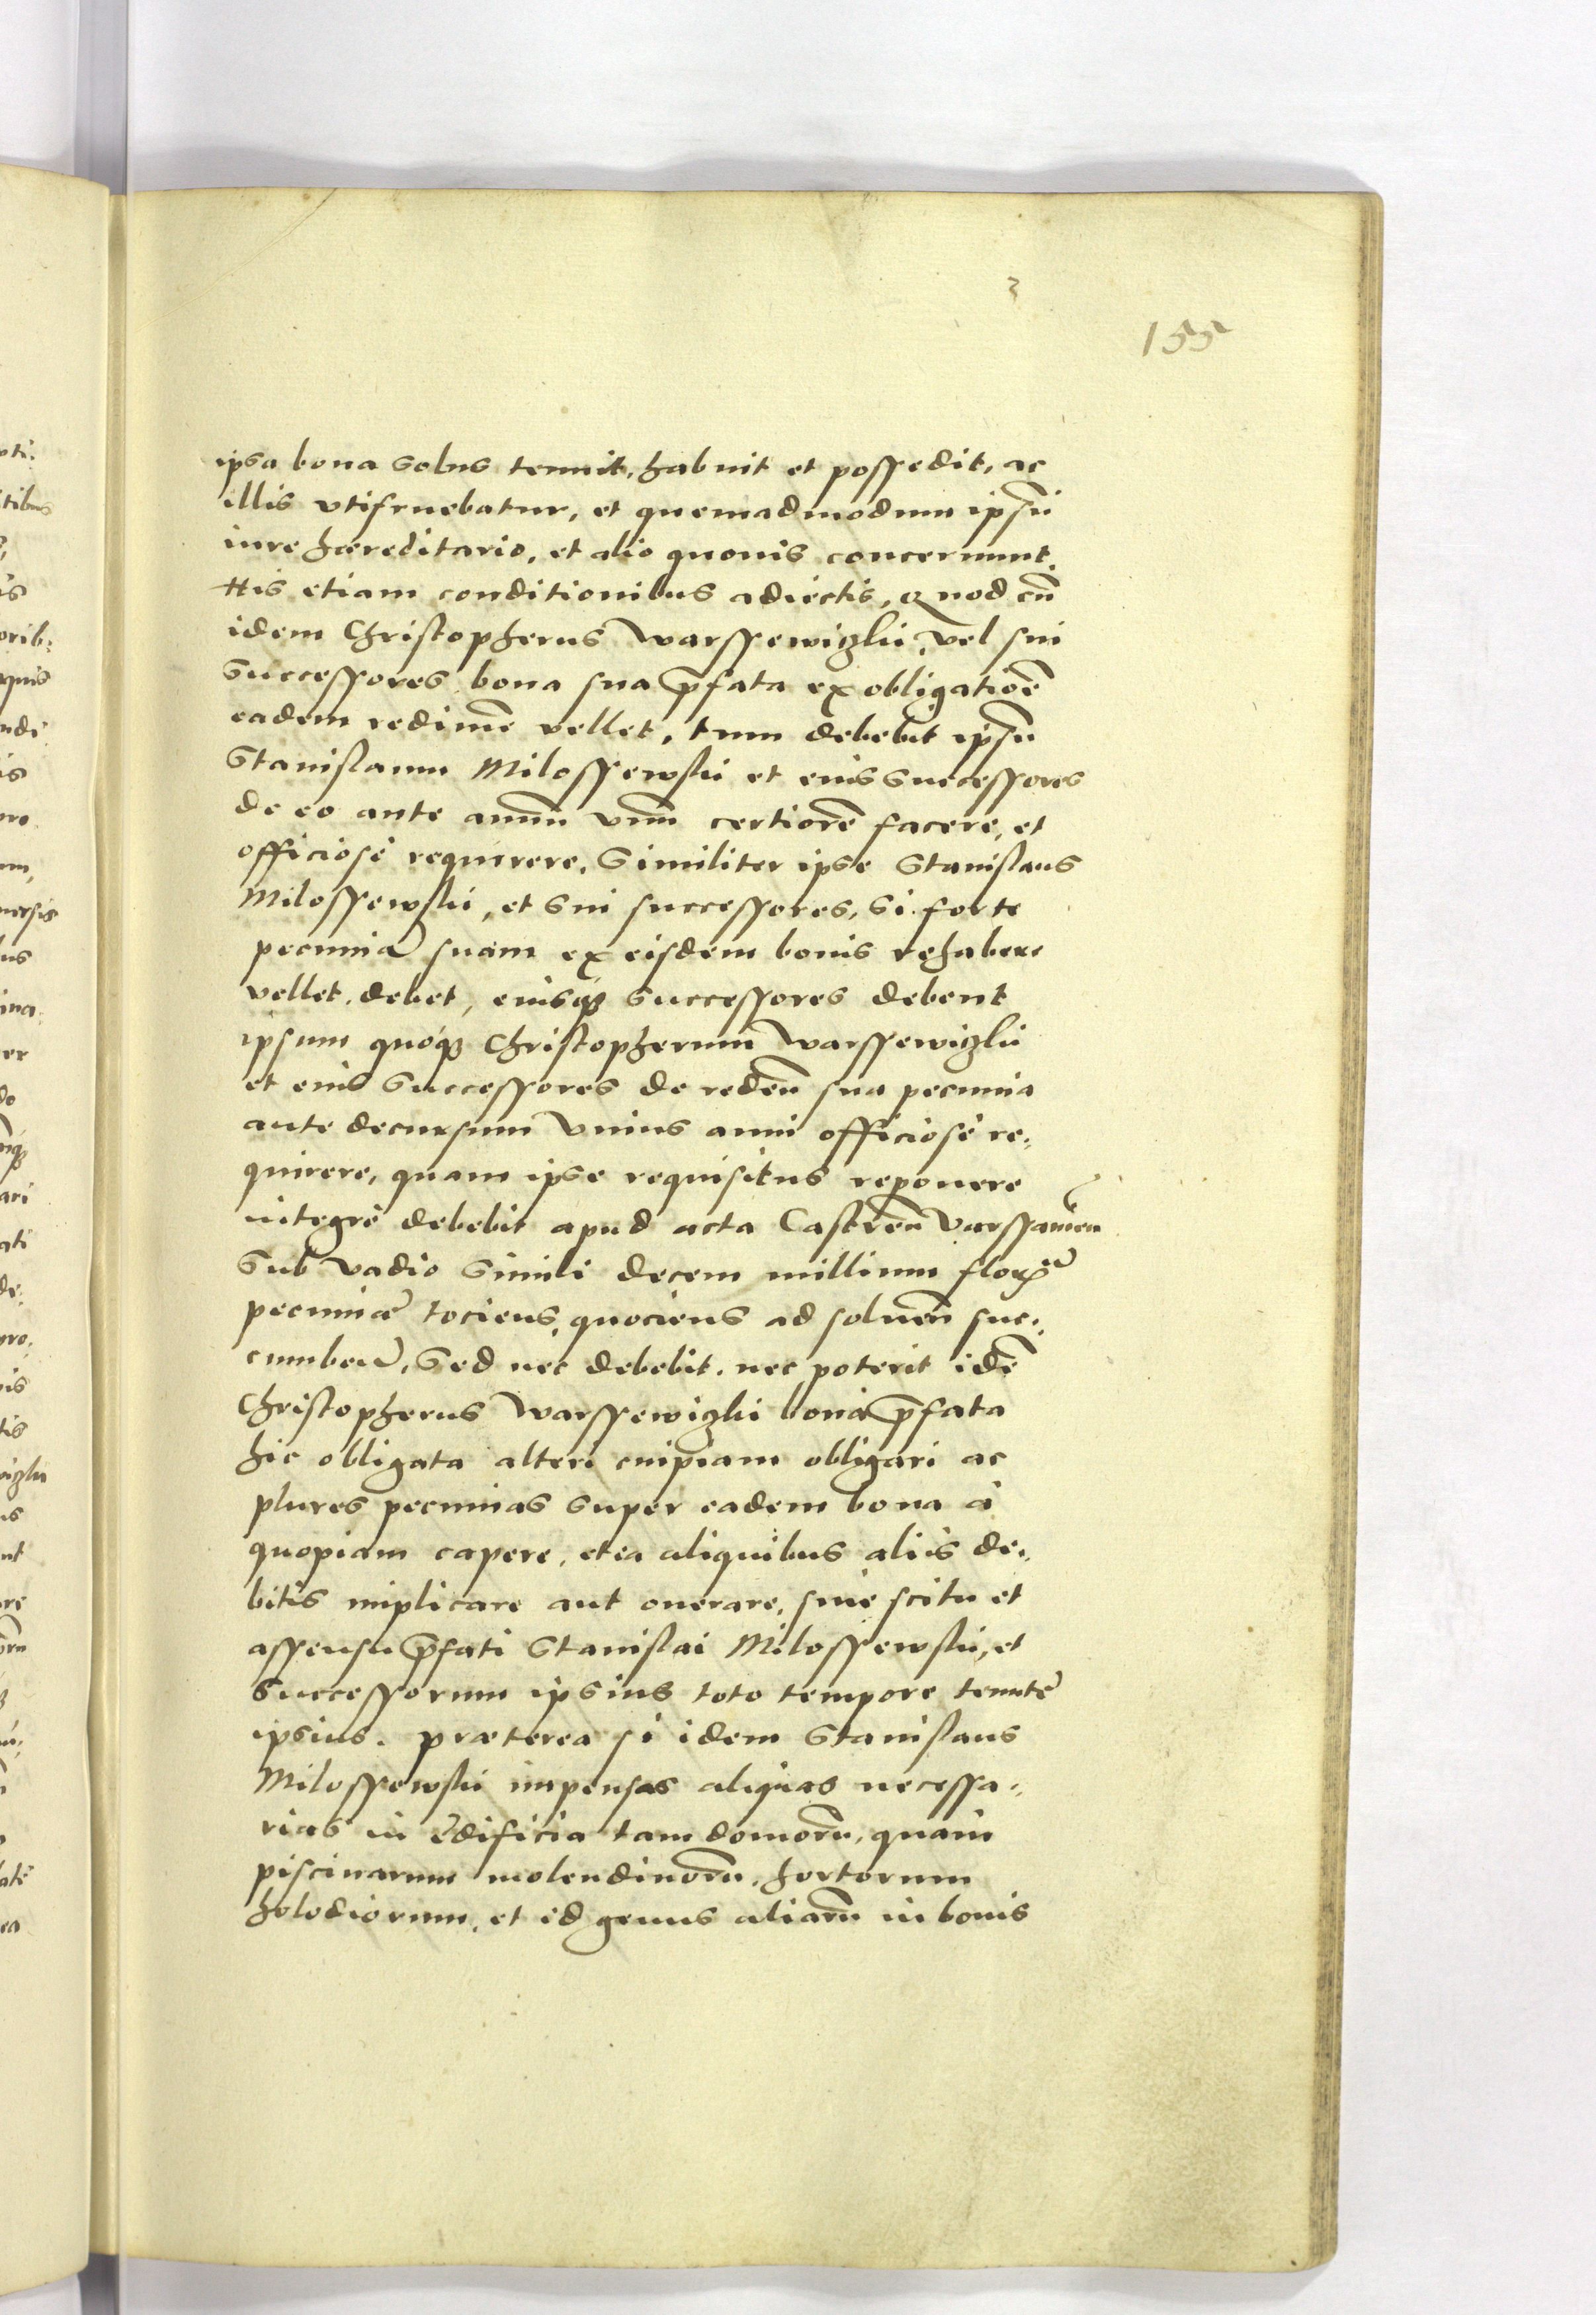 155
ipsa bona solus tenuit, habuit et possedit, ac
illis vtifruebatur, et quemadmodum ipsū
iure hæreditario, et alio quouis concernunt.
His etiam conditionibus adiectis, Quod cū
idem Christopherus Warssewiczki, vel sui
Successores bona sua p̄fata ex obligatiōe
eadem redimē vellet, tum debebit ipsū
Stanislaum Milossewski et eius Successores
de eo ante annū vnū certiorē facere, et
officiosè requirere, Similiter ipse Stanislaus
Milossewski, et Sui successores, Si forte
pecuniā suam ex eisdem bonis rehabere
vellet, debet, eiusq; Successores debent
ipsum quoq; Christopherum Warssewiczki
et eius Successores de redeñ sua pecunia
ante decursum Vnius anni officiosè re„
quirere, quam ipse requisitus reponere
integrè debebit apud acta Castreñ Varssauieñ
Sub vadio Simili decem millium florꝝ
pecuniæ tociens, quociens ad solueñ suc„
cumbeū, Sed nec debebit, nec poterit idē
Christopherus Warssewiczki bona p̄fata
hic obligata alteri cuipiam obligari ac
plures pecunias Super eadem bona à
quopiam capere, et ea aliquibus aliis de„
bitis implicare aut onerare, sine scitu et
assensu p̄fati Stanislai Milossewski, et
Successorum ipsius toto tempore tenutē
ipsius. præterea si idem Stanislaus
Milossewski impensas aliquas necessa„
rias in ędificia tam domorū, quam
piscinarum molendinorū, hortorum
holodiorum, et id genus aliarū in bonis